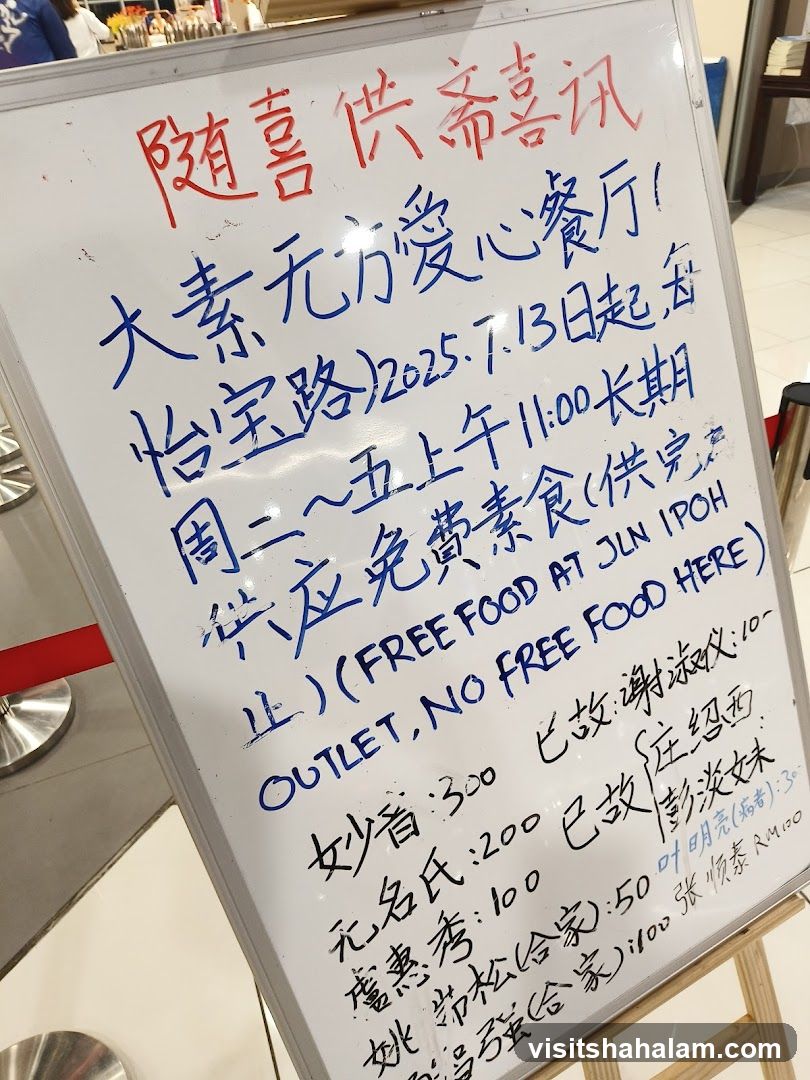 随喜供斋喜讯
大素无方爱心餐厅(
怡宝路)2025.7.13日起,每
周二~五上午11:00长期
供应免費素食(供完为
止)(FREE FOOD AT JLN IPOH
OUTLET, NO FREE FOOD HERE)
妙音:300 已故:谢淑仪:10-
无名氏:200 已故{庄绍西
彭淡妹
盧惠秀:100 叶明亮(病者):30-
姚 松(合家):50 张顺泰 RM100
强(合家):100
visitshahalam.com